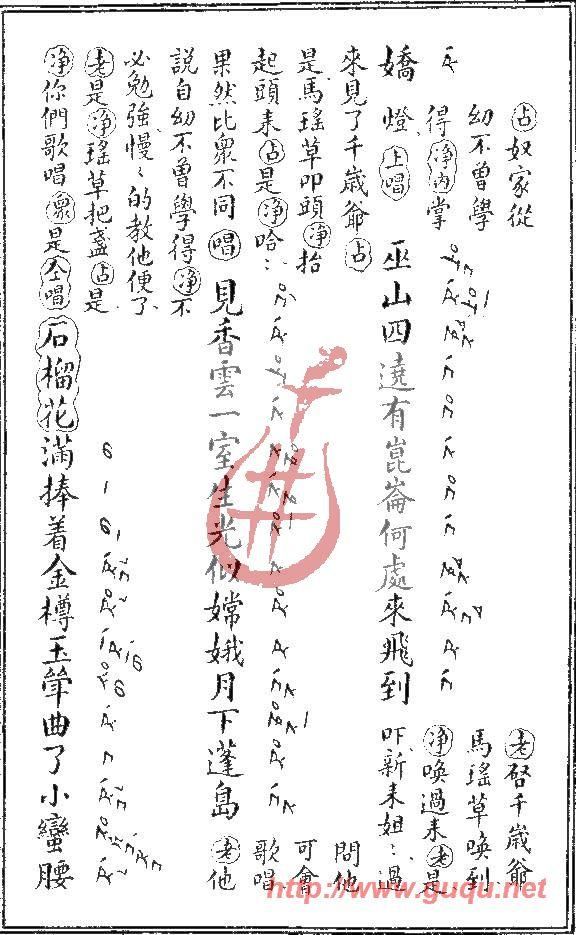 嬌
占奴家從
幼不曾學
得淨內掌
燈上唱
巫山四遶有崑崙何處來飛到
老啓千歲爺
馬瑤草喚到
淨喚過來老是
吓新來姐〻過
來見了千歲爺占
是馬瑤草叩頭淨抬
起頭來占是淨哈〻
果然比衆不同唱
見香雲一室生光似嫦娥月下蓬島
問他
可會
歌唱
老他
說自幼不曾學得淨不
必勉強慢〻的教他便了
老是淨瑤草把盞占是
淨你們歌唱衆是仝唱
石榴花滿捧着金樽玉斝曲了小蠻腰
http://www.guqu.net